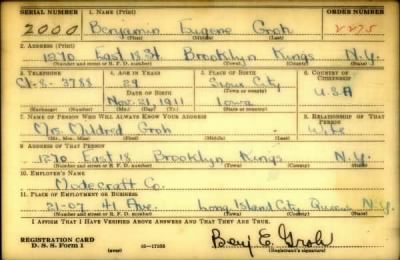 SERIAL NUMBER 1. NAME (Print) ORDER NUMBER
2000 Benjamin Eugene Groh 2275
(First) (Middle) (Last)
2. ADDRESS (Print)
1270 East 18 St Brooklyn Kings N.Y.
(Number and street or R. F. D. number) (Town) (County) (State)
3. TELEPHONE 4. AGE IN YEARS 5. PLACE OF BIRTH 6. COUNTRY OF CITIZENSHIP
29 Sioux City
DATE OF BIRTH U.S.A
Nov. 21, 1911 Iowa
(Exchange) (Number) (Mo.) (Day) (Yr.) (State or country)
7. NAME OF PERSON WHO WILL ALWAYS KNOW YOUR ADDRESS 8. RELATIONSHIP OF THAT PERSON
Mrs. Mildred Groh Wife
(Mr., Mrs., Miss) (First) (Middle) (Last)
9. ADDRESS OF THAT PERSON
1270 East 18 Brooklyn Kings N.Y.
(Number and street or R. F. D. number) (Town) (County) (State)
10. EMPLOYER'S NAME
Modecraft Co.
11. PLACE OF EMPLOYMENT OR BUSINESS
21-07 41 Ave. Long Island City Queens N.Y.
(Number and street or R. F. D. number) (Town) (County) (State)
I AFFIRM THAT I HAVE VERIFIED ABOVE ANSWERS AND THAT THEY ARE TRUE.
REGISTRATION CARD
D. S. S. Form 1 (over) Benj E. Groh
(Registrant's signature)